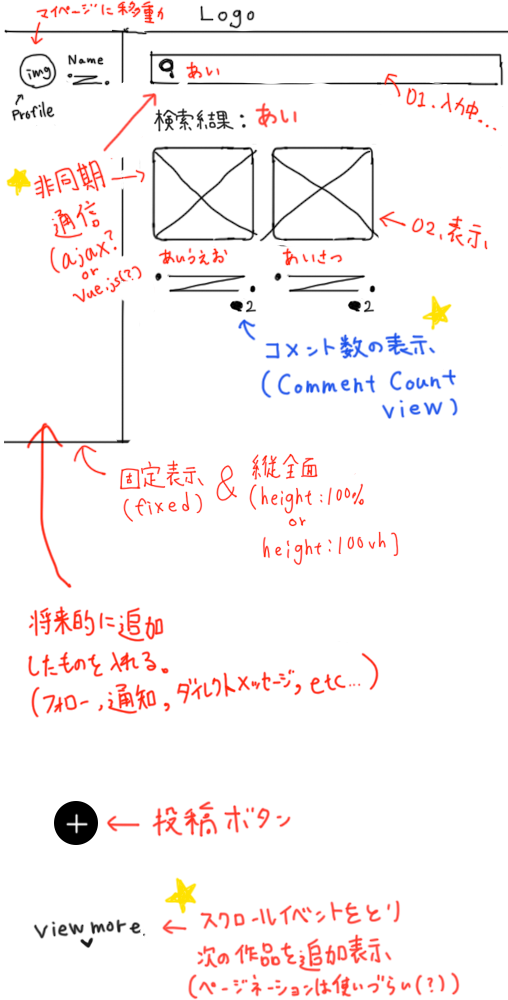 マイページに移動
Logo
img
Name
Profile
あい
01.入力中...
検索結果:あい
非同期
通信
(ajax?
or
Vue.js(?)
02.表示
あいうえお
あいさつ
2
2
コメント数の表示
(Comment Count
view)
固定表示
(fixed)
&
縦全面
(height:100%
or
height:100vh]
将来的に追加
したものを入れる。
(フォロー,通知,ダイレクトメッセージ,etc...)
+
投稿ボタン
view more.
スクロールイベントをとり
次の作品を追加表示
(ページネーションは使いづらい(?))